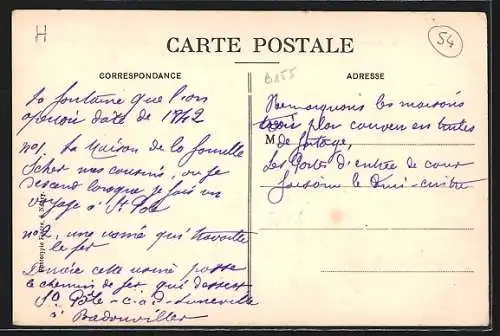 H
54
CARTE POSTALE
B155
CORRESPONDANCE
ADRESSE
La fontaine que l'on
aperçoit date de 1842
n°1. La Maison de la famille
mes cousins, où je
descend lorsque je fais un
voyage à St Pole
n°2, une usine qui travaille
le fer
Derrière cette usine passe
le chemin de fer qui dessert
St Pôle - c. à. d. Luneville
à Badonviller
Remarquons les maisons
plat couvert en tuiles
M
Les Portes d'entrée de cour
le